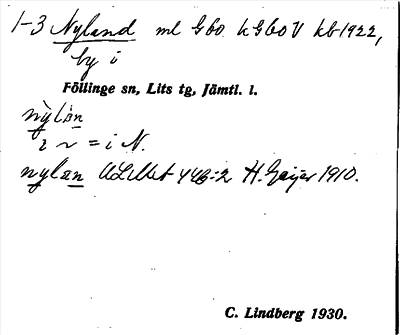 1-3 Nyland ml Gbo kGboV kb 1922,
by i
Föllinge sn, Lits tg, Jämtl. l.
nỳlan
= i N.
nylan ULMA 446:2 H. Geijer 1910.
C. Lindberg 1930.